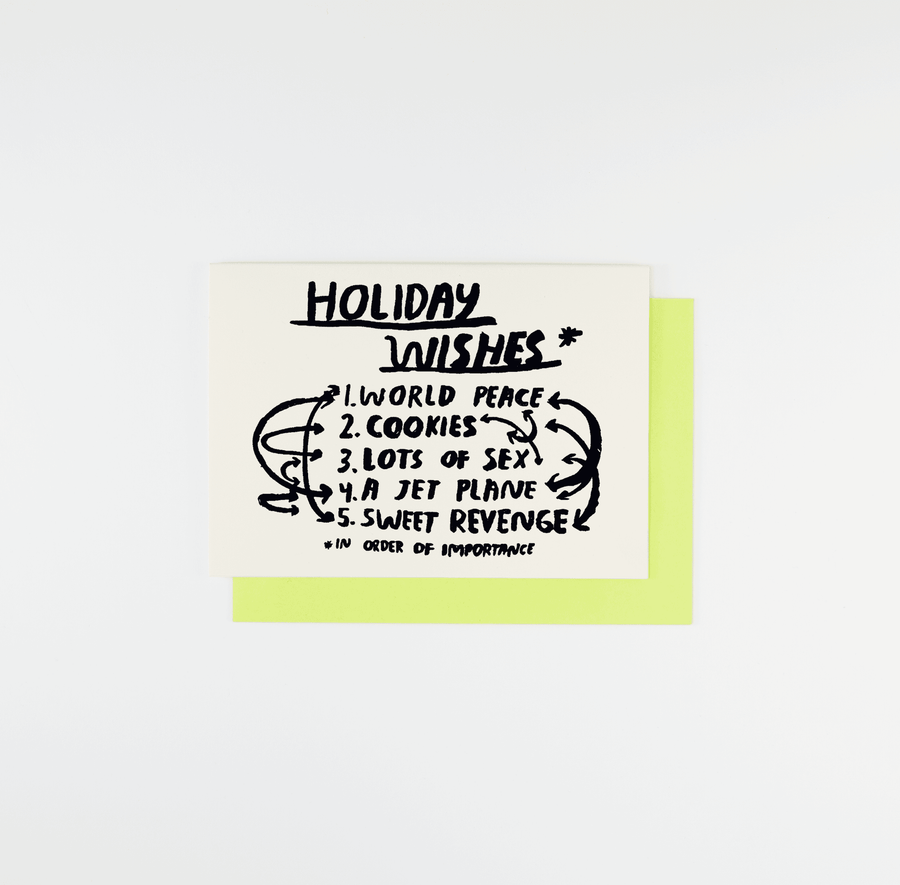 HOLIDAY
WISHES*
1. WORLD PEACE
2. COOKIES
3. LOTS OF SEX
4. A JET PLANE
5. SWEET REVENGE
*IN ORDER OF IMPORTANCE